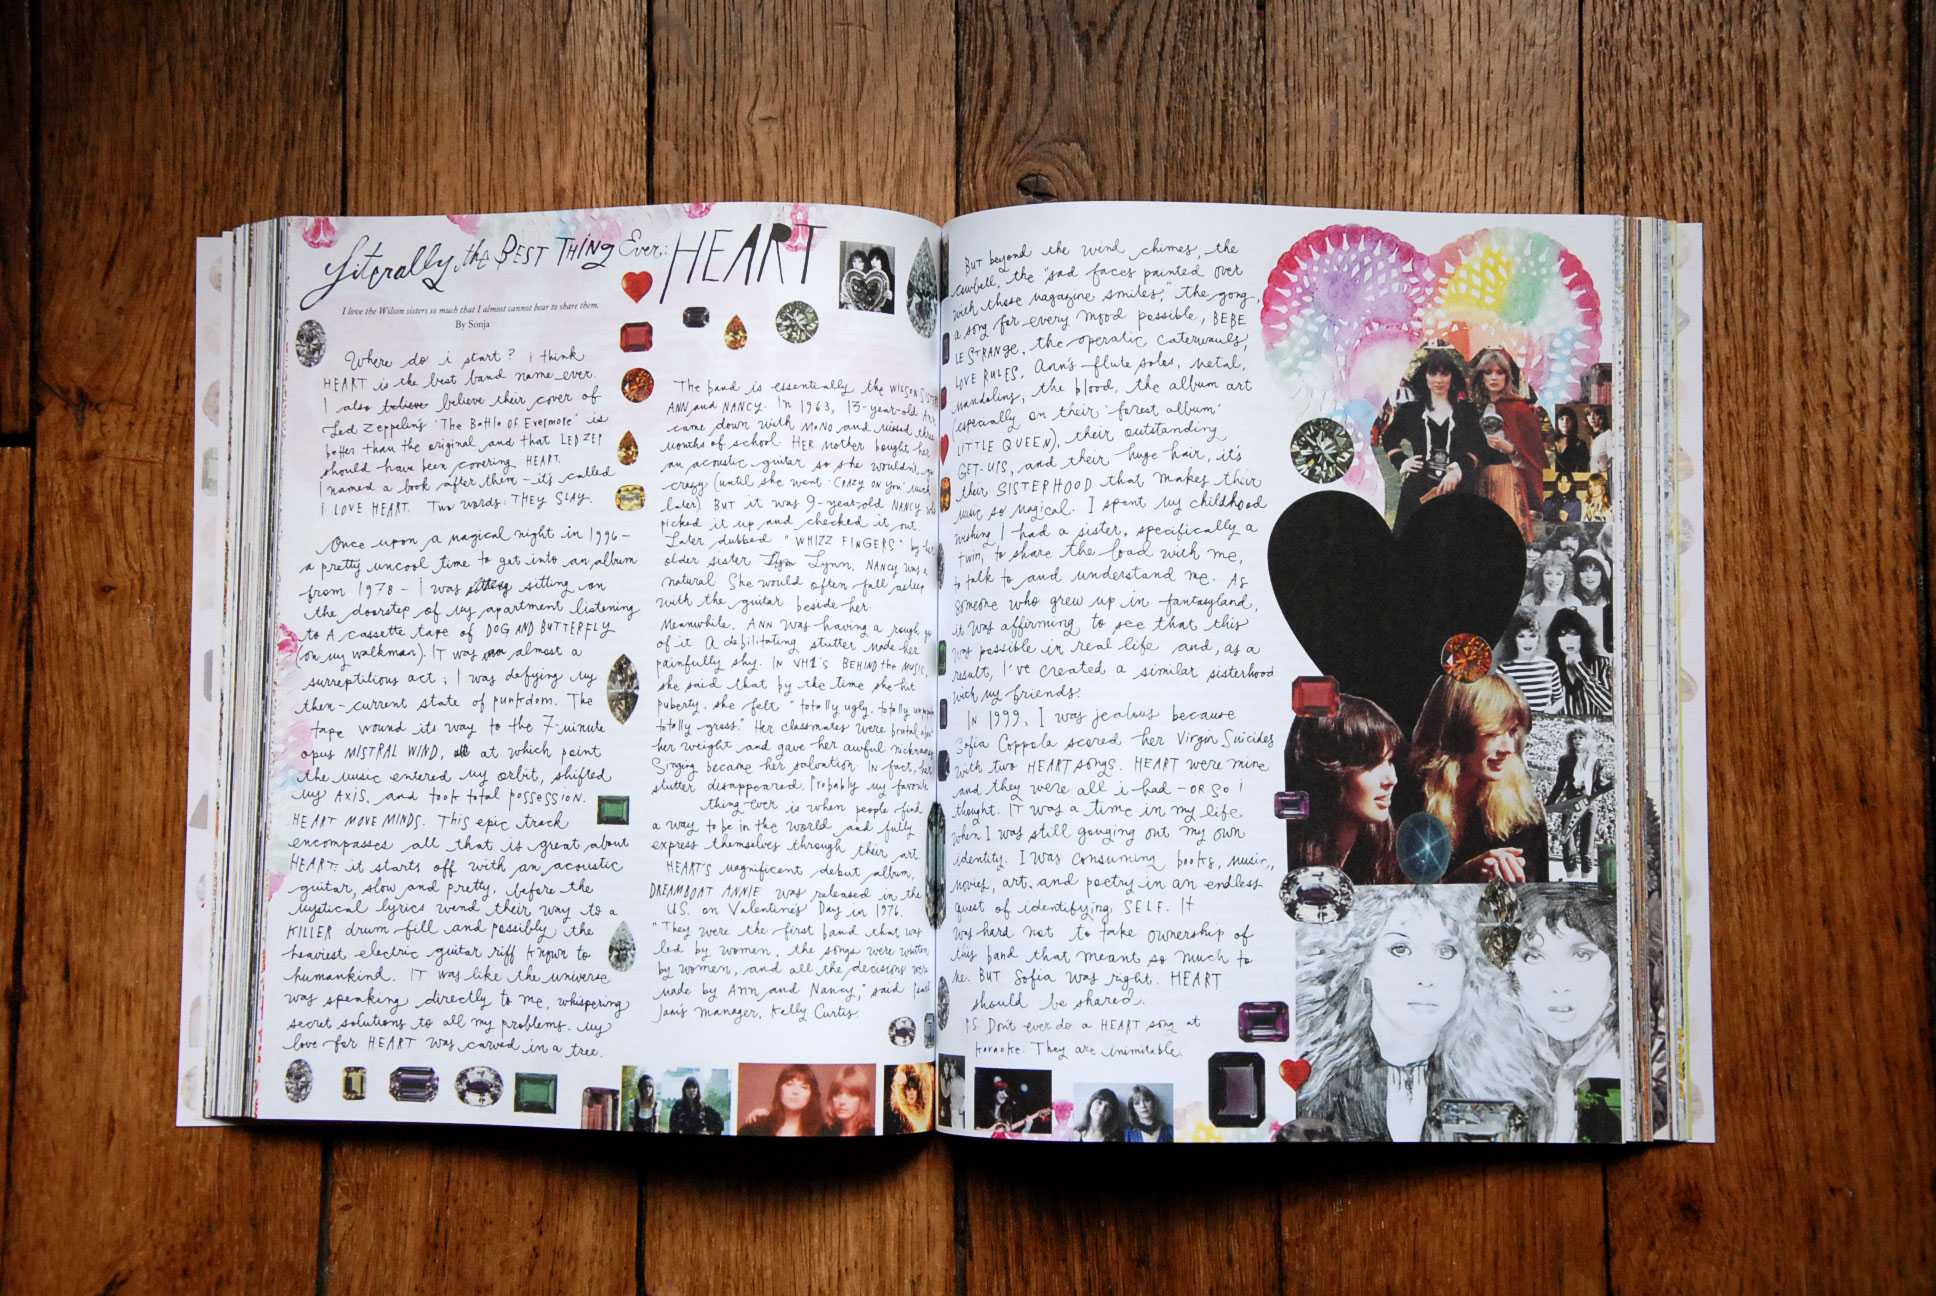 Literally the BEST THING Ever: HEART
I love the Wilson sisters so much that I almost cannot bear to share them.
By Sonja
Where do i start? i think
HEART is the best band name ever.
I also believe believe their cover of
Led Zeppelin's 'The Battle of Evermore' is
better than the original and that LED ZEP
should have been covering HEART.
I named a book after them - it's called
I LOVE HEART. Two words: THEY SLAY.
Once upon a magical night in 1996 -
a pretty uncool time to get into an album
from 1978 - I was sitting on
the doorstep of my apartment listening
to A cassette tape of DOG AND BUTTERFLY
(on my walkman). IT was almost a
surreptitious act; I was defying my
then-current state of punkdom. The
tape wound its way to the 7-minute
opus MISTRAL WIND, at which point
the music entered my orbit, shifted
my AXIS, and took total possession.
HEART MOVE MINDS. This epic track
encompasses all that is great about
HEART: it starts off with an acoustic
guitar, slow and pretty, before the
mystical lyrics wend their way to a
KILLER drum fill and possibly the
heaviest electric guitar riff known to
humankind. IT was like the universe
was speaking directly to me, whispering
secret solutions to all my problems. My
love for HEART was carved in a tree.
The band is essentially the WILSON
ANN and NANCY. In 1963, 13-year-old Ann
came down with MONO and missed three
months of school. HER mother bought her
an acoustic guitar so she wouldn't go
crazy (until she went 'CRAZY ON YOU' much
later) BUT it was 9-year-old NANCY who
picked it up and checked it out.
Later dubbed "WHIZZ FINGERS" by her
older sister Lynn, NANCY was a
natural She would often fall asleep
with the guitar beside her.
Meanwhile, ANN was having a rough go
of it A debilitating stutter made her
painfully shy. IN VH1's BEHIND the MUSIC,
she said that by the time she hit
puberty, she felt "totally ugly, totally
totally gross." Her classmates were brutal about
her weight and gave her awful nicknames
Singing became her salvation IN fact, her
stutter disappeared. Probably my favorite
thing ever is when people find
a way to be in the world and fully
express themselves through their art.
HEART'S magnificent debut album,
DREAMBOAT ANNIE was released in the
U.S. on Valentine's Day in 1976.
"They were the first band that was
led by women, the songs were written
by women, and all the decisions were
made by Ann and Nancy," said
manager, Kelly Curtis.
BUT beyond the wind chimes, the
cowbell, the "sad faces painted over
with those magazine smiles," the gong,
a song for every mood possible, BEBE
LE STRANGE, the operatic caterwauls,
LOVE RULES, Ann's flute solos, metal,
mandolins, the blood, the album art
(especially on their 'forest album'
LITTLE QUEEN), their outstanding
GET-UPS, and their huge hair, it's
their SISTERHOOD that makes their
music so magical. I spent my childhood
wishing I had a sister, specifically a
twin, to share the load with me,
to talk to and understand me. As
someone who grew up in fantasyland,
it was affirming to see that this
was possible in real life and, as a
result, I've created a similar sisterhood
with my friends.
IN 1999, I was jealous because
Sofia Coppola scored her Virgin Suicides
with two HEART songs. HEART were mine
and they were all i had - OR SO I
thought. IT was a time in my life
when I was still gouging out my own
identity. I was consuming books, music,
movies, art, and poetry in an endless
quest of identifying SELF. It
was hard not to take ownership of
this band that meant so much to
me. BUT Sofia was right. HEART
should be shared.
PS Don't ever do a HEART song at
karaoke. They are inimitable.